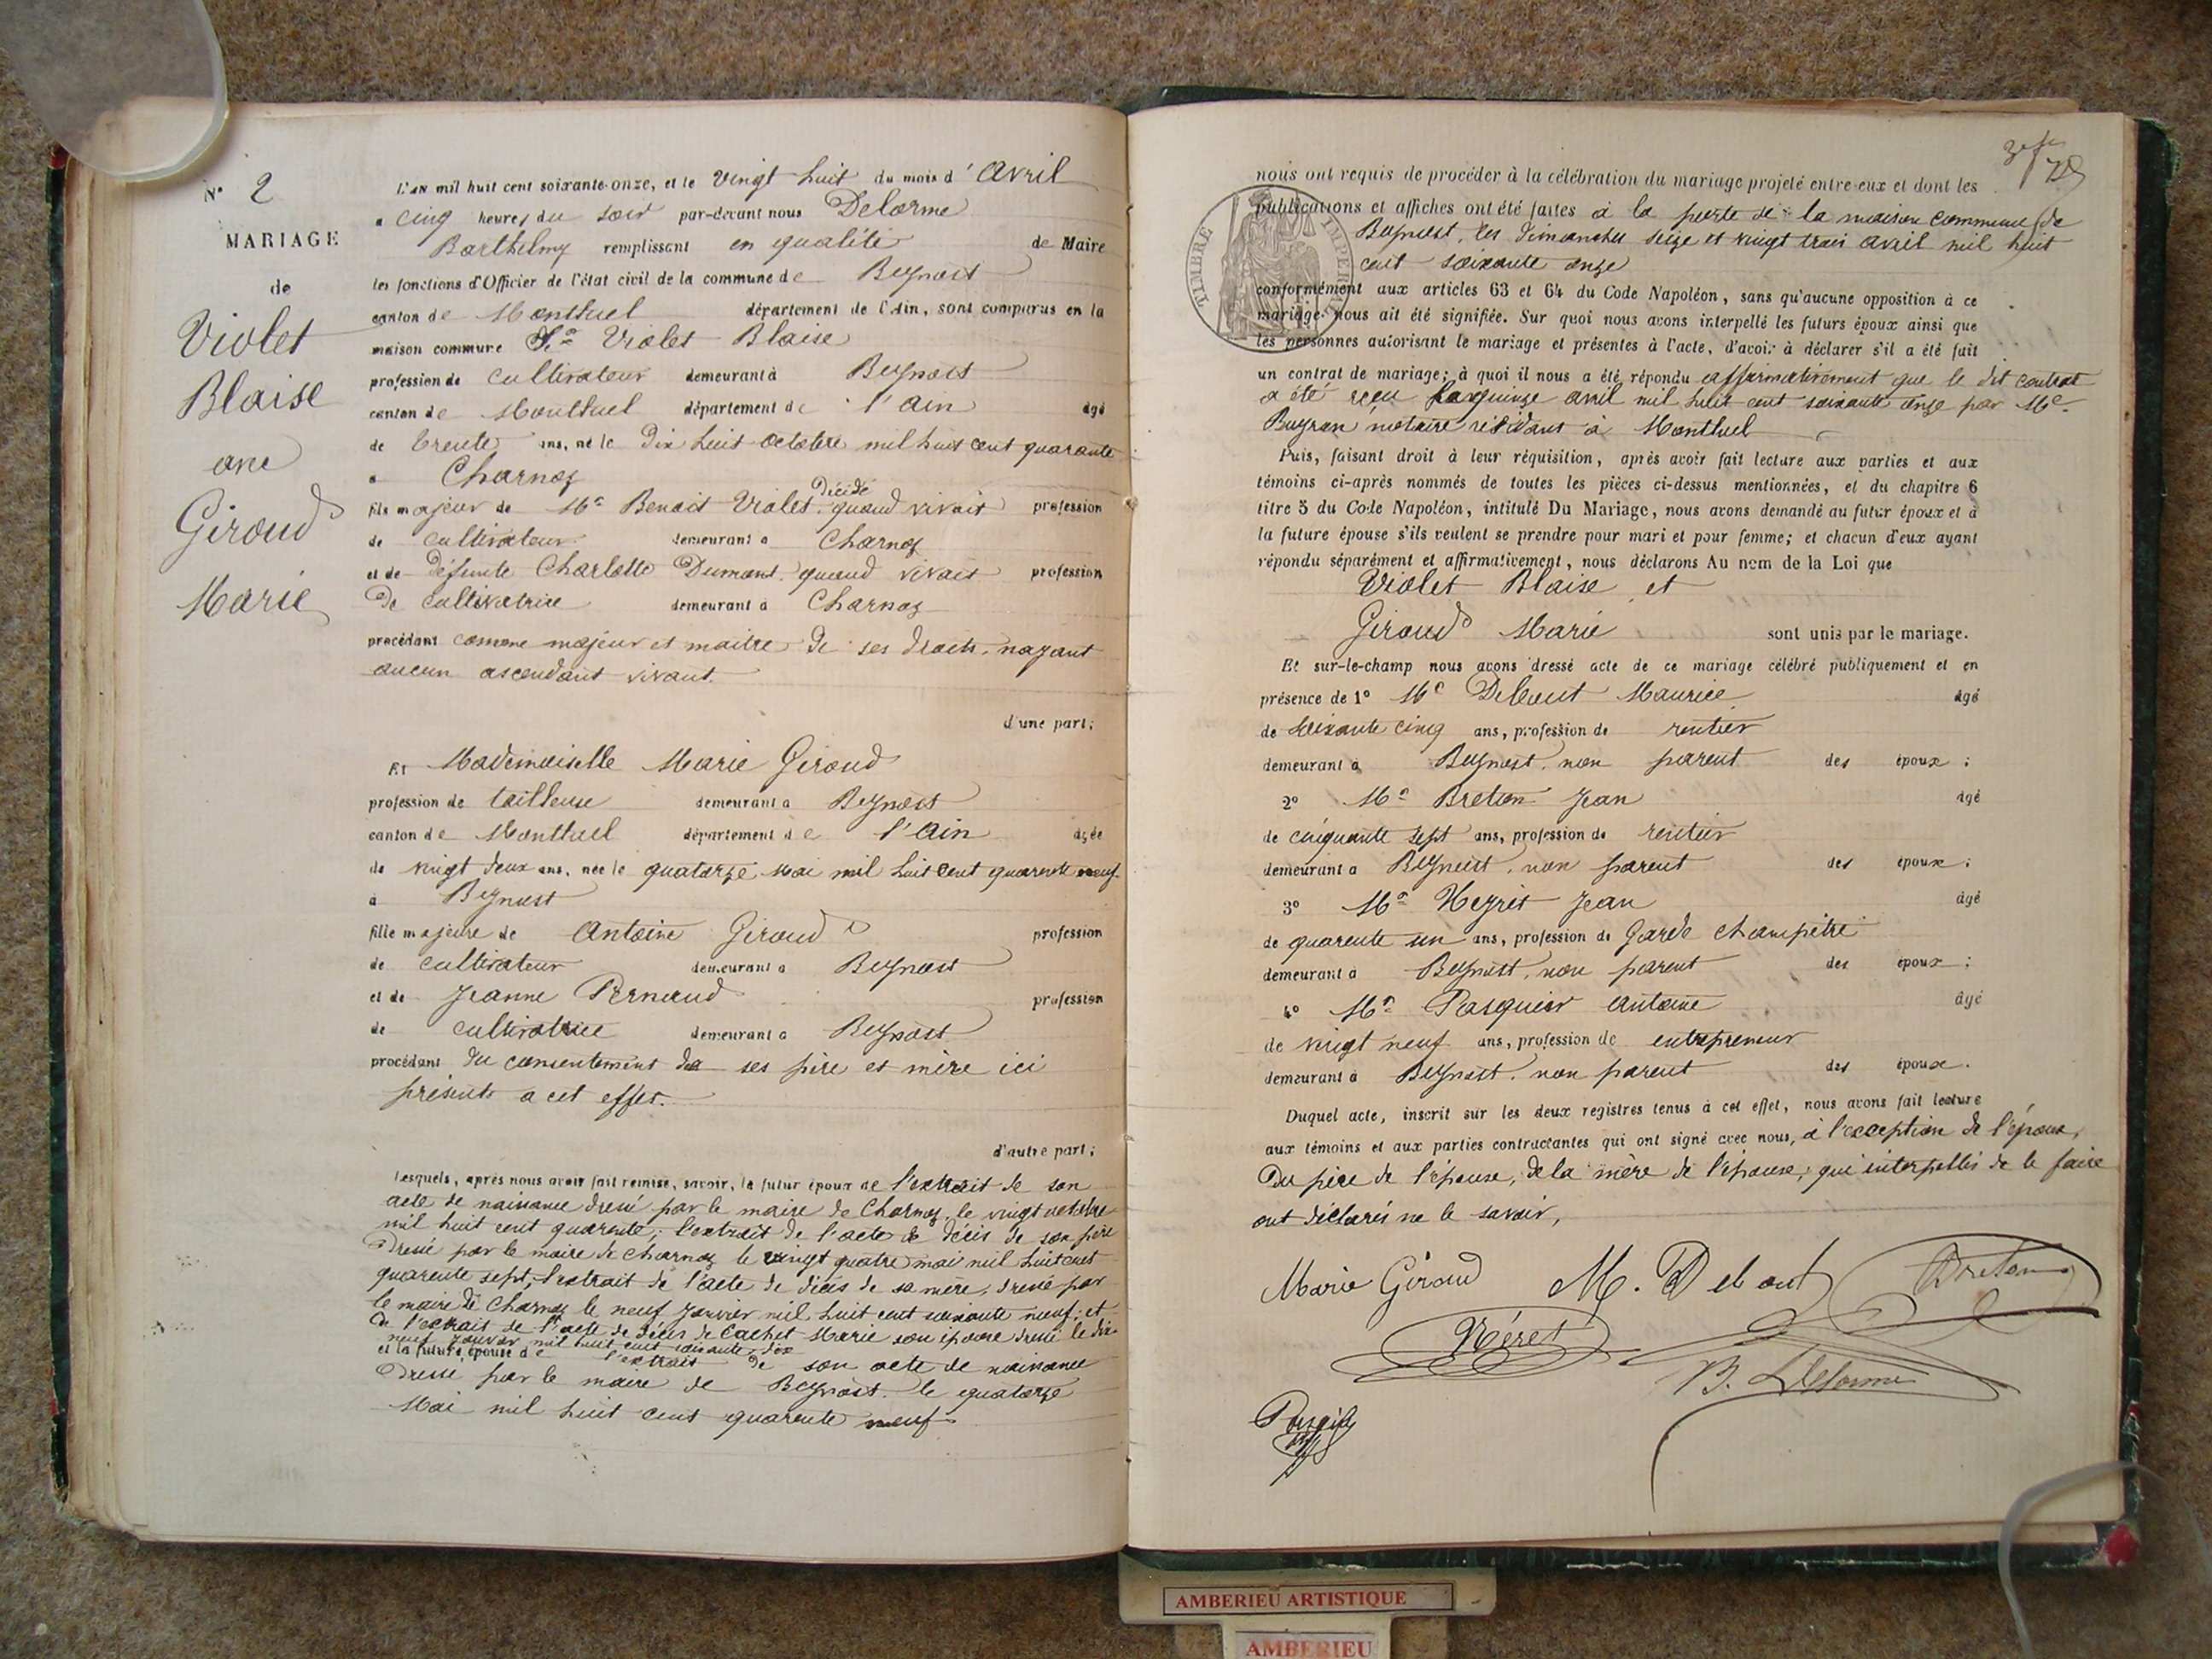 N° 2
MARIAGE
de
Violet
Blaise
ane
Giroud
Marie
L'AN mil huit cent soixante-onze, et le vingt huit du mois d'Avril
a cinq heures du soir par-devant nous Delorme
Barthelmy remplissant en qualité de Maire
les fonctions d'Officier de l'état civil de la commune de Beynost
canton de Montluel département de l'Ain, sont comparus en la
maison commune Violet Blaise
profession de cultivateur demeurant à Beynost
canton de Montluel département de l'ain âgé
de trente ans, né le Dix huit octobre mil huit cent quarante
a Charnoz
fils majeur de Mr Benoit Violet, Décédé quand vivait profession
de cultivateur demeurant a Charnoz
et de Défunte Charlotte Dumont, quand vivait profession
De Cultivatrice demeurant à Charnoz
procédant comme majeur et maitre de ses droits, nayant
aucun ascendant vivant.
d'une part;
Et Mademoiselle Marie Giroud
profession de tailleuse demeurant a Beynost
canton de Montluel département de l'Ain âgée
de vingt deux ans, née le quatorze Mai mil huit cent quarente neuf
à Beynost
fille majeure de Antoine Giroud profession
de cultivateur demeurant a Beynost
et de Jeanne Pernoud profession
de cultivatrice demeurant a Beynost
procédant du consentement de ses père et mère ici
présents a cet effet.
d'autre part;
Lesquels, après nous avoir fait remise, savoir, le futur époux de l'extrait de son
acte de naissance dressé par le maire de Charnoz, le vingt octobre
mil huit cent quarente; l'extrait de l'acte de décès de son père
Dressé par le maire de Charnoz le vingt quatre mai mil huit cent
quarente sept, l'extrait de l'acte de décès de sa mère, dressé par
le maire de Charnoz le neuf Janvier mil huit cent soixante neuf, et
De l'extrait de l'acte de décès de Cachet Marie son épouse dressé le dix
neuf Janvier mil huit cent soixante dix
et la future épouse de l'extrait de son acte de naissance
Dressé par le maire de Beynost, le quatorze
Mai mil huit cent quarente neuf
nous ont requis de procéder à la célébration du mariage projeté entre-eux et dont les
publications et affiches ont été faites à la porte de la maison commune de
Beynost, les dimanches seize et vingt trois avril mil huit
cent soixante onze
conformément aux articles 63 et 64 du Code Napoléon, sans qu'aucune opposition à ce
mariage nous ait été signifiée. Sur quoi nous avons interpellé les futurs époux ainsi que
les personnes autorisant le mariage et présentes à l'acte, d'avoir à déclarer s'il a été fait
un contrat de mariage; à quoi il nous a été répondu affirmativement que le dit contrat
a été reçu quinze avril mil huit cent soixante onze par Me
notaire résidant à Montluel
Puis, faisant droit à leur réquisition, après avoir fait lecture aux parties et aux
témoins ci-après nommés de toutes les pièces ci-dessus mentionnées, et du chapitre 6
titre 5 du Code Napoléon, intitulé Du Mariage, nous avons demandé au futur époux et à
la future épouse s'ils veulent se prendre pour mari et pour femme; et chacun d'eux ayant
répondu séparément et affirmativement, nous déclarons Au nom de la Loi que
Violet Blaise, et
Giroud Marie sont unis par le mariage.
Et sur-le-champ nous avons dressé acte de ce mariage célébré publiquement et en
présence de 1° Mr Debout Maurice âgé
de soixante cinq ans, profession de rentier
demeurant à Beynost, non parent des époux;
2° Mr Breton Jean âgé
de cinquante sept ans, profession de rentier
demeurant a Beynost, non parent des époux;
3° Mr Neyret Jean âgé
de quarente un ans, profession de Garde Champêtre
demeurant à Beynost, non parent des époux;
4° Mr Pasquier Antoine âgé
de vingt neuf ans, profession de entrepreneur
demeurant à Beynost, non parent des époux.
Duquel acte, inscrit sur les deux registres tenus à cet effet, nous avons fait lecture
aux témoins et aux parties contractantes qui ont signé avec nous, à l'exception de l'époux,
Du père de l'épouse, de la mère de l'épouse, qui interpellés de le faire
ont déclarés ne le savoir,
Marie Giroud M. Debout Breton
Néret
B. Delorme
TIMBRE IMPERIAL
AMBERIEU ARTISTIQUE
AMBERIEU